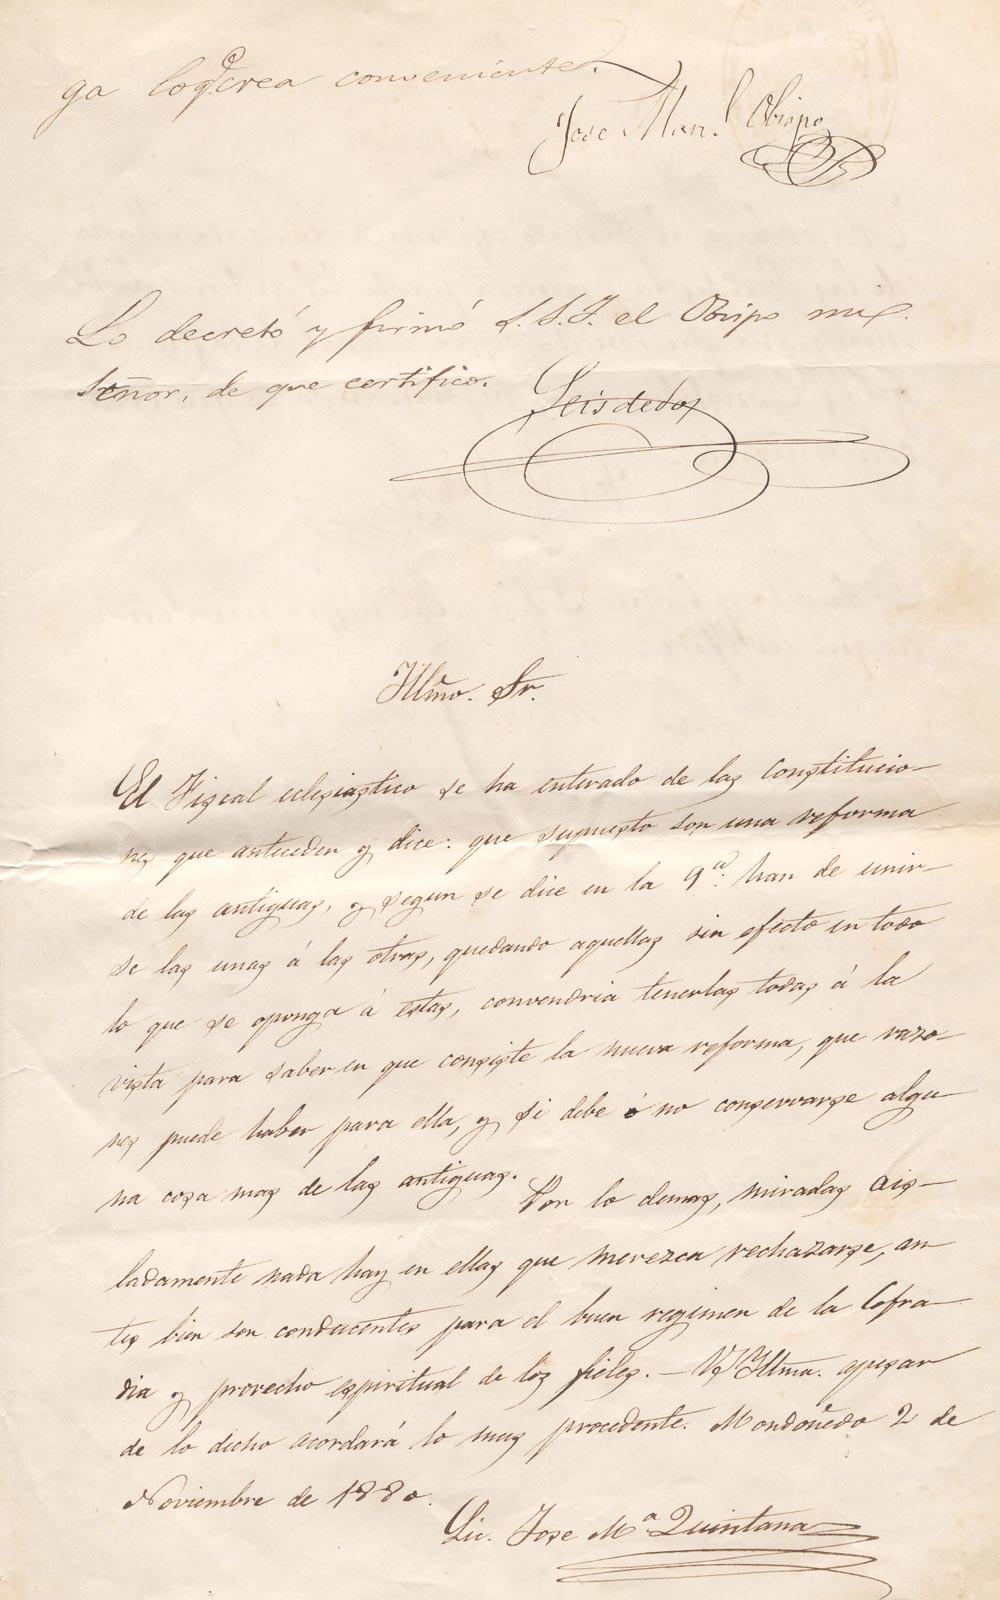 ga loq.e crea conveniente.
Jose Man.l Obispo
Lo decretó y firmó S. S. I. el Obispo mi
Señor, de que certifico.
Seisdedos
Illmo. Sr.
El Fiscal eclesiastico se ha enterado de las constitucio-
nes que anteceden y dice: que supuesto son una reforma
de las antiguas, y segun se dice en la 9.a han de unir-
se las unas á las otras, quedando aquellas sin efecto en todo
lo que se oponga á estas, convendria tenerlas todas á la
vista para saber en que consiste la nueva reforma, que razo-
nes puede haber para ella, y si debe ó no conservarse algu-
na cosa mas de las antiguas. Por lo demas, miradas ais-
ladamente nada hay en ellas que merezca rechazarse, an-
tes bien son conducentes para el buen regimen de la Cofra-
dia y provecho espiritual de los fieles. - V. S. Illma. apesar
de lo dicho acordará lo mas procedente. Mondoñedo 2 de
Noviembre de 1880.
Lic. Jose M.a Quintana